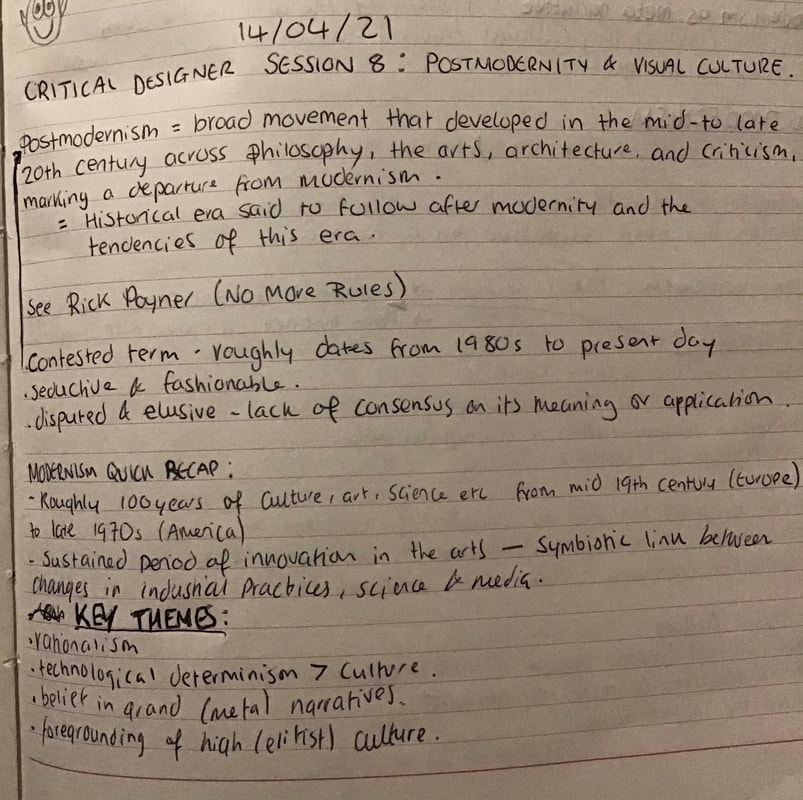 14/04/21
CRITICAL DESIGNER SESSION 8 : POSTMODERNITY & VISUAL CULTURE.
Postmodernism = broad movement that developed in the mid-to late
20th century across philosophy, the arts, architecture, and criticism,
marking a departure from modernism.
= Historical era said to follow after modernity and the
tendencies of this era.
See Rick Poyner (No More Rules)
Contested term - roughly dates from 1980s to present day
. seductive & fashionable.
. disputed & elusive - lack of consensus on its meaning or application.
MODERNISM QUICK RECAP:
- Roughly 100 years of culture, art, science etc from mid 19th century (Europe)
to late 1970s (America)
- Sustained period of innovation in the arts — symbiotic link between
changes in industrial practices, science & media.
KEY THEMES:
. rationalism
. technological determinism > culture.
. belief in grand (meta) narratives.
. foregrounding of high (elitist) culture.